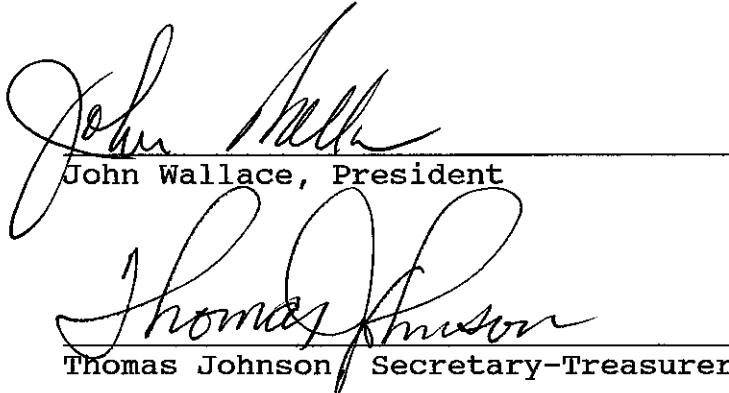 John Walla
John Wallace, President
Thomas Johnson
Thomas Johnson, Secretary-Treasurer